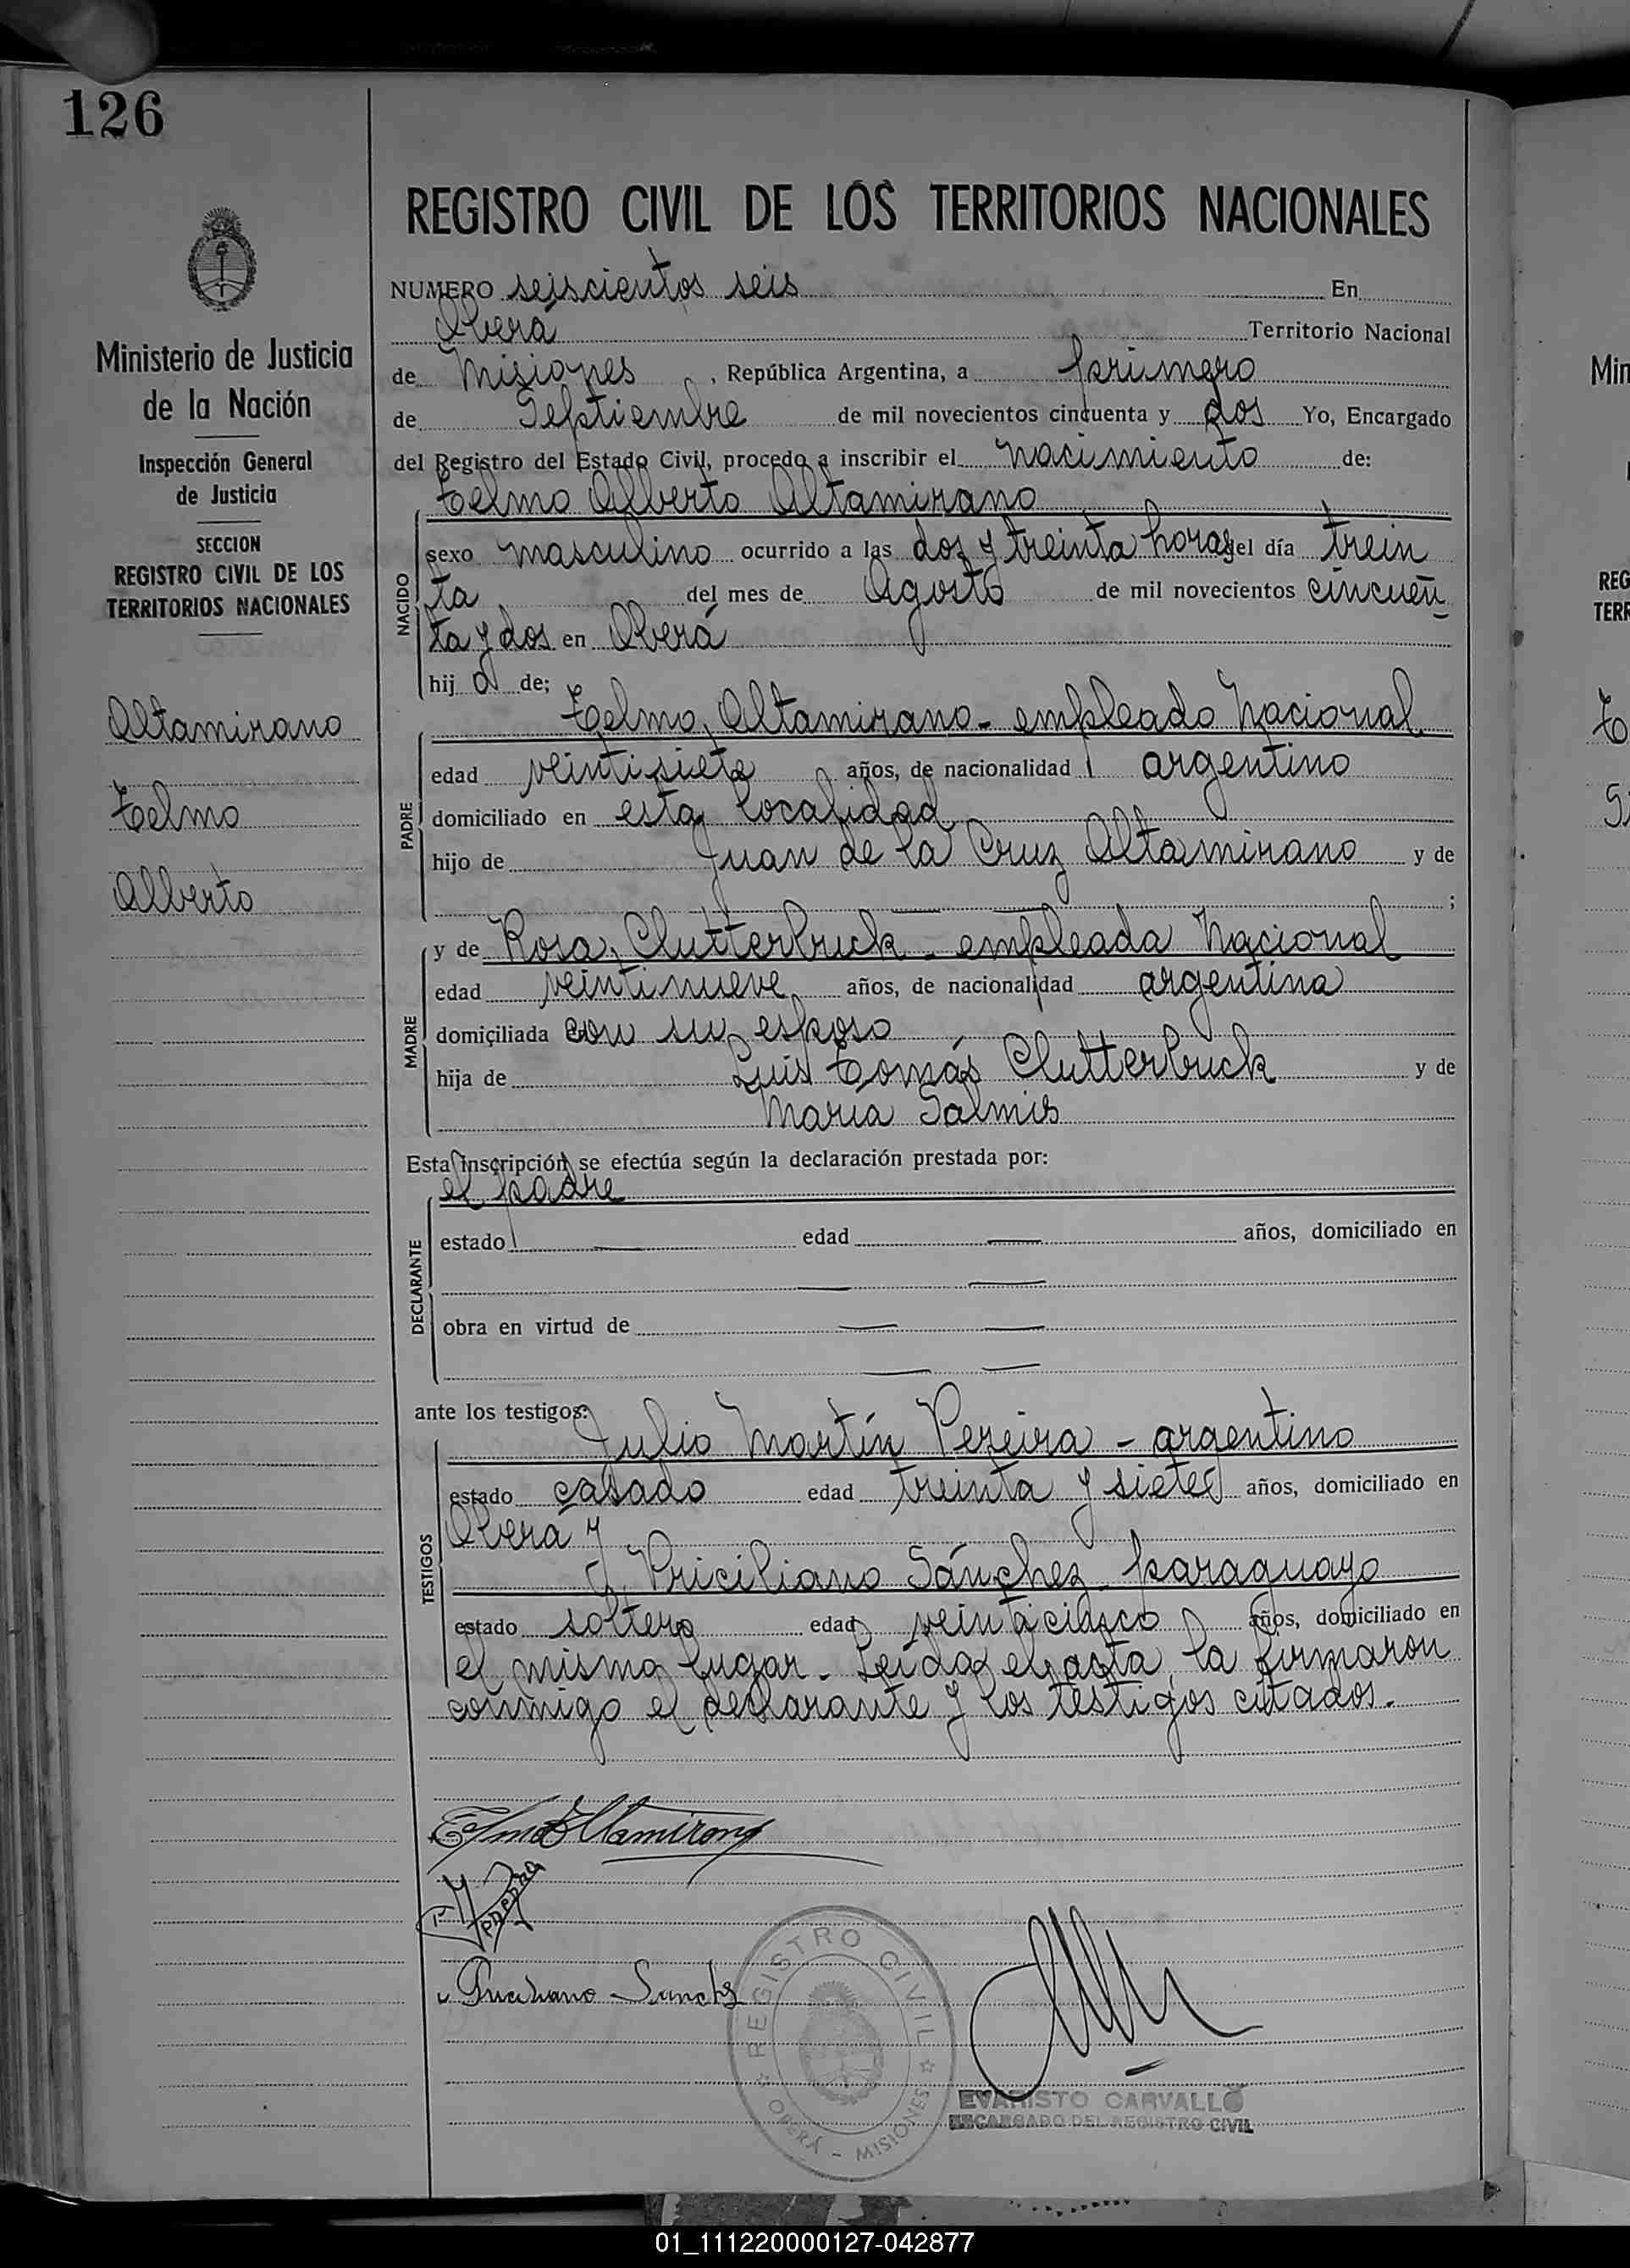 126
REGISTRO CIVIL DE LOS TERRITORIOS NACIONALES
Ministerio de Justicia
de la Nación
Inspección General
de Justicia
SECCION
REGISTRO CIVIL DE LOS
TERRITORIOS NACIONALES
Altamirano
Telmo
Alberto
NUMERO seiscientos seis En
Oberá Territorio Nacional
de Misiones, República Argentina, a primero
de Septiembre de mil novecientos cincuenta y dos Yo, Encargado
del Registro del Estado Civil, procedo a inscribir el nacimiento de:
Telmo Alberto Altamirano
NACIDO
sexo masculino ocurrido a las dos y treinta horas del día trein
ta del mes de Agosto de mil novecientos cincuen
ta y dos en Oberá
hij o de;
Telmo Altamirano - empleado Nacional
PADRE
edad veintisiete años, de nacionalidad argentino
domiciliado en esta localidad
hijo de Juan de la Cruz Altamirano y de
— — ;
y de Rosa Clutterbuck - empleada Nacional
MADRE
edad veintinueve años, de nacionalidad argentina
domiciliada con su esposo
hija de Luis Tomás Clutterbuck y de
María Salmis
Esta inscripción se efectúa según la declaración prestada por:
el padre
DECLARANTE
estado — edad — años, domiciliado en
— —
obra en virtud de — —
— —
ante los testigos:
Julio Martín Pereira - argentino
TESTIGOS
estado casado edad treinta y siete años, domiciliado en
Oberá y
Priciliano Sánchez - paraguayo
estado soltero edad veinticinco años, domiciliado en
el mismo lugar. Leída el acta, la firmaron
conmigo el declarante y los testigos citados.
Telmo Altamirano
Pereira
Priciliano Sanchez
REGISTRO CIVIL
OBERÁ - MISIONES
EVARISTO CARVALLO
ENCARGADO DEL REGISTRO CIVIL
Min
REG
TERR
01_111220000127-042877